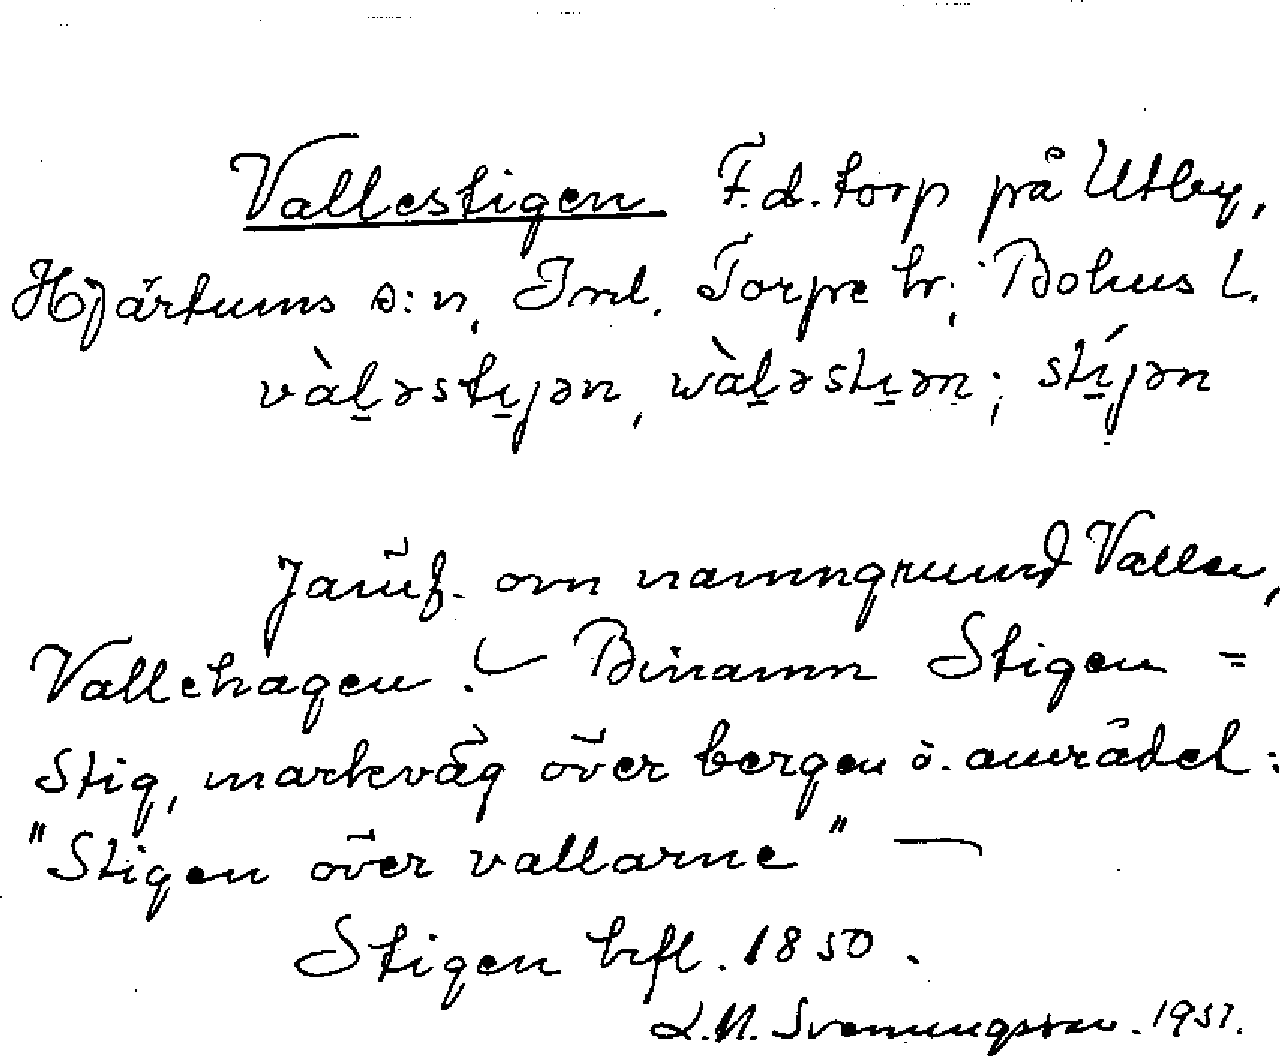 Vallestigen F.d. torp på Utby,
Hjärtums s:n, Inl. Torpe hr; Bohus l.
vàḻəstı̱jən, wàḻəstı̱ən; stı̱́jən
Jämf. om namngrund Vallen,
Vallehagen. Binamn Stigen =
Stig, markväg över bergen i området:
"Stigen över vallarne" —
Stigen hfl. 1850.
L.N. Svenungsson. 1957.